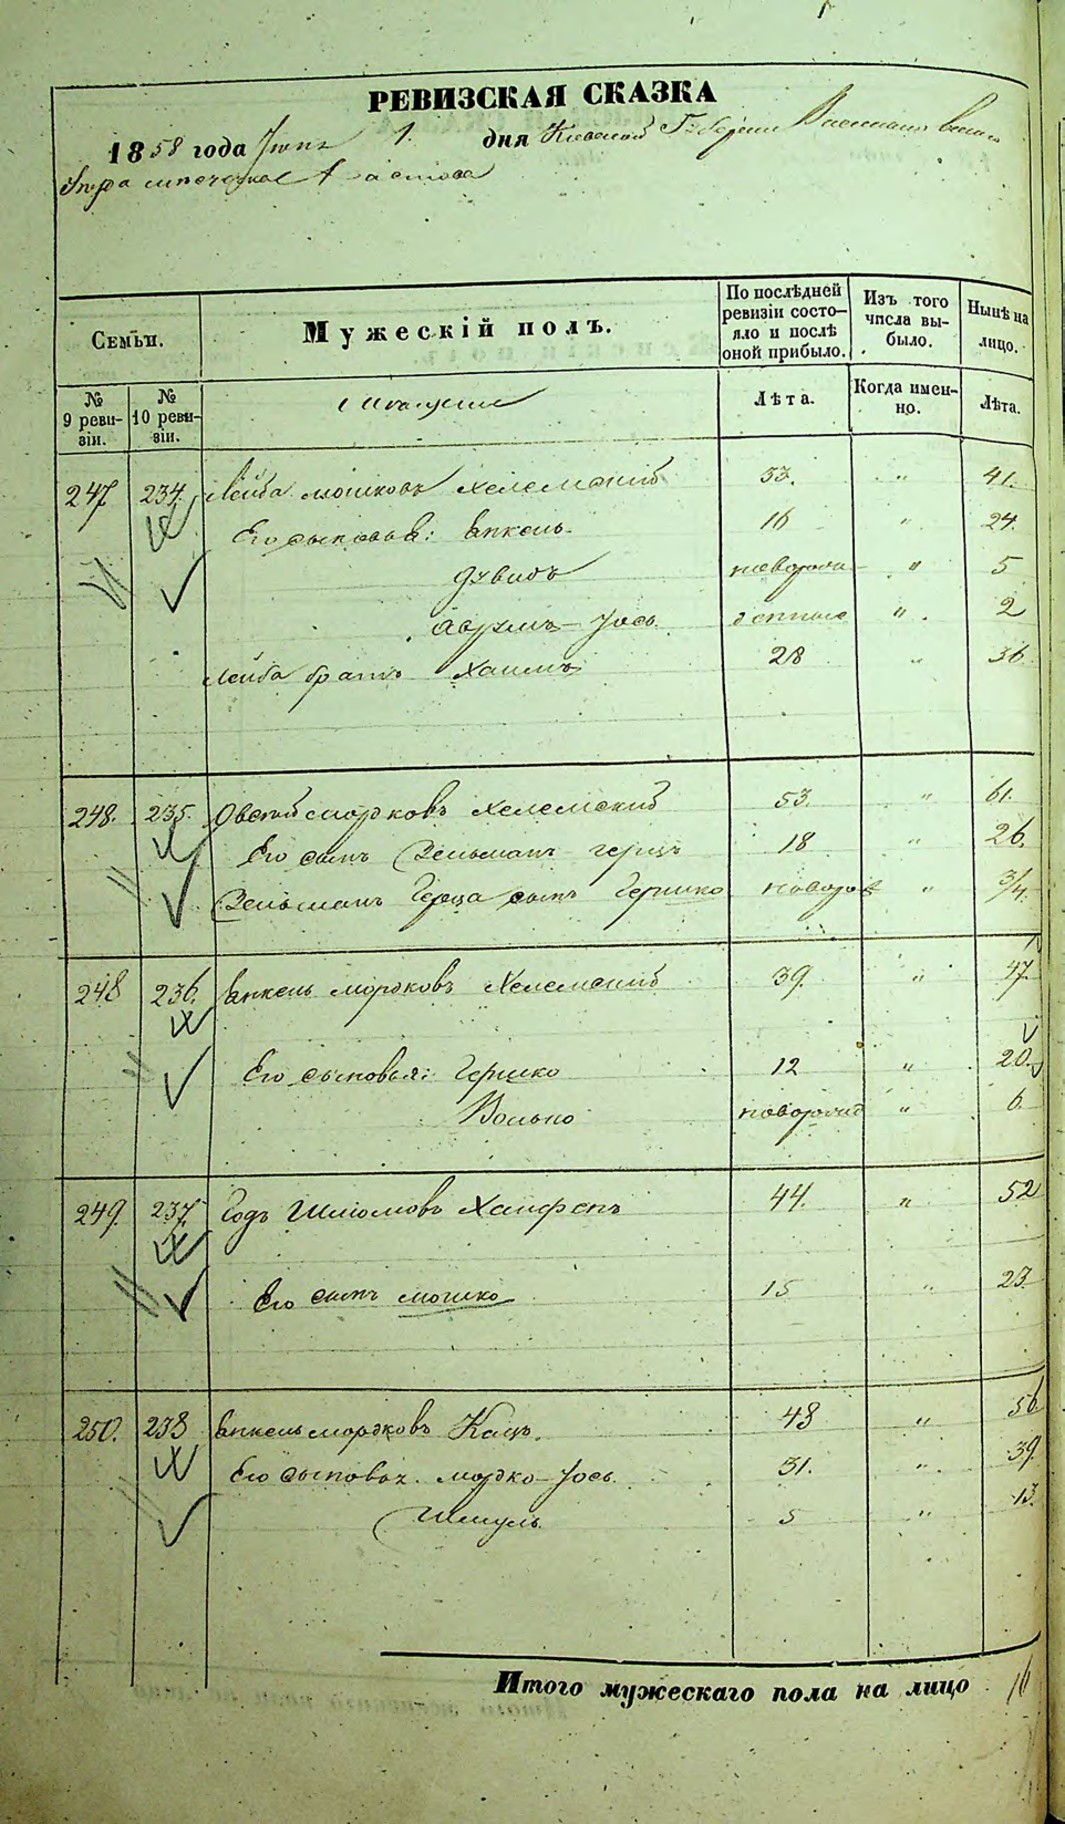 РЕВИЗСКАЯ СКАЗКА
1858 года Іюня 1. дня Кіевской Губерніи Васильковскаго
уезда местечка Фастова
Семьи.
Мужескій полъ.
По послѣдней ревизіи состо—яло и послѣ оной прибыло.
Изъ того числа вы—было.
Нынѣ на лицо.
№ 9 реви—зіи.
№ 10 реви—зіи.
Мещане
Лѣта.
Когда имен—но.
Лѣта.
247 234. Лейба Мошковъ Хелемскій 33. " 41.
Его сыновья: Янкель 16 " 24.
Дувидъ новорож " 5
Аврумъ—Іось денные " 2
Лейба братъ Хаимъ 28 " 36.
248. 235. Овсей Мордковъ Хелемскій 53. " 61.
Его сынъ Зельманъ Герцъ 18 " 26.
Зельманъ Герца сынъ Гершко новорож " 3/4.
248 236. Янкель Мордковъ Хелемскій 39. " 47.
Его сыновья: Гершко 12 " 20.
Волько новорожд " 6.
249. 237. Годъ Шліомовъ 44. " 52
Его сынъ Мошко 15 " 23.
250. 238 Янкель Мордковъ Кацъ. 48 " 56.
Его сыновья. Мордко—Іось. 31. " 39.
Шмуль. 5 " 13.
Итого мужескаго пола на лицо 16